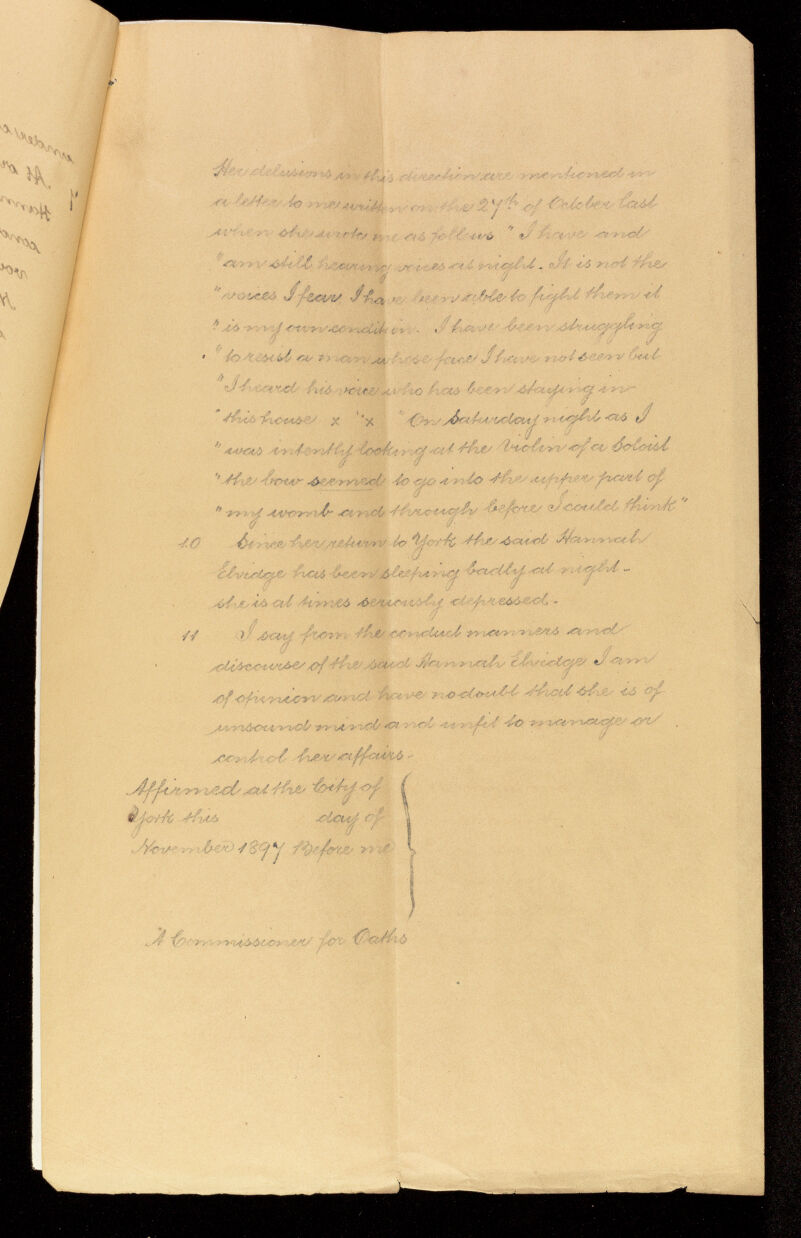 Her delusions in this direction are mentioned in
a letter to me written on the 27th of October last
when she wrote me as follows " I have and
" am still hearing voices at night. It is not the
" voices I fear I have been able to fight them it
" is my own condition. I have been struggling
" to resist a man whose face I have not seen but
" I heard his voice who has been staying in
" this house x " x " On Saturday night as I
" was intently looking at the Violin of a Soloist
" the bow seemed to go into the upper part of
" my womb and through before I could think "
10 Since her return to York the said Hannah
Elvidge has been sleeping badly at night -
she is at times seriously depressed -
11 I say from the conduct manners and
discourse of the said Hannah Elvidge I am
of opinion and have no doubt that she is of
unsound mind and unfit to manage or
control her affairs -
Affirmed at the City of
York this day of
November 1897 Before me
A Commissioner for Oaths